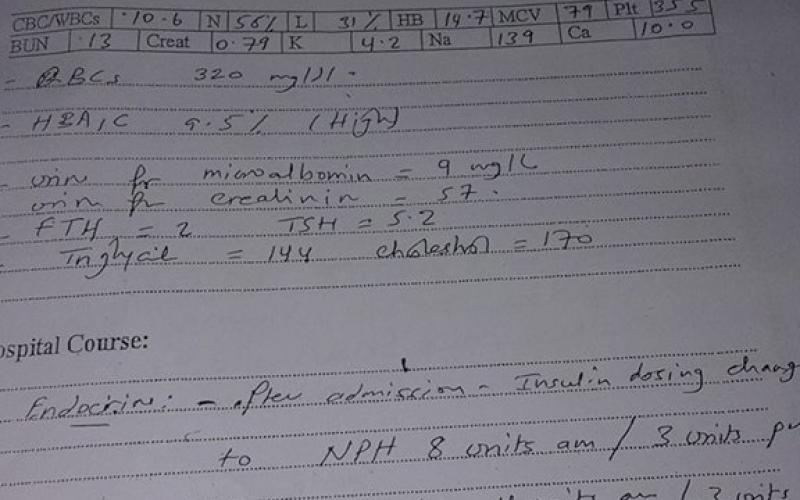 CBC/WBCs 10.6 N 56% L 31% HB 14.7 MCV 79 Plt 355
BUN 13 Creat 0.79 K 4.2 Na 139 Ca 10.0
- RBCs 320 mg/dl.
- HBA1C 9.5% (High)
- urin for microalbomin = 9 mg/L
urin for crealinin = 57.
- FTH = 2 TSH = 5.2
Triglycil = 144 choleshol = 170
ospital Course:
Endocrine: - after admission - Insulin dosing chang
to NPH 8 units am / 3 units p
am / 3 units